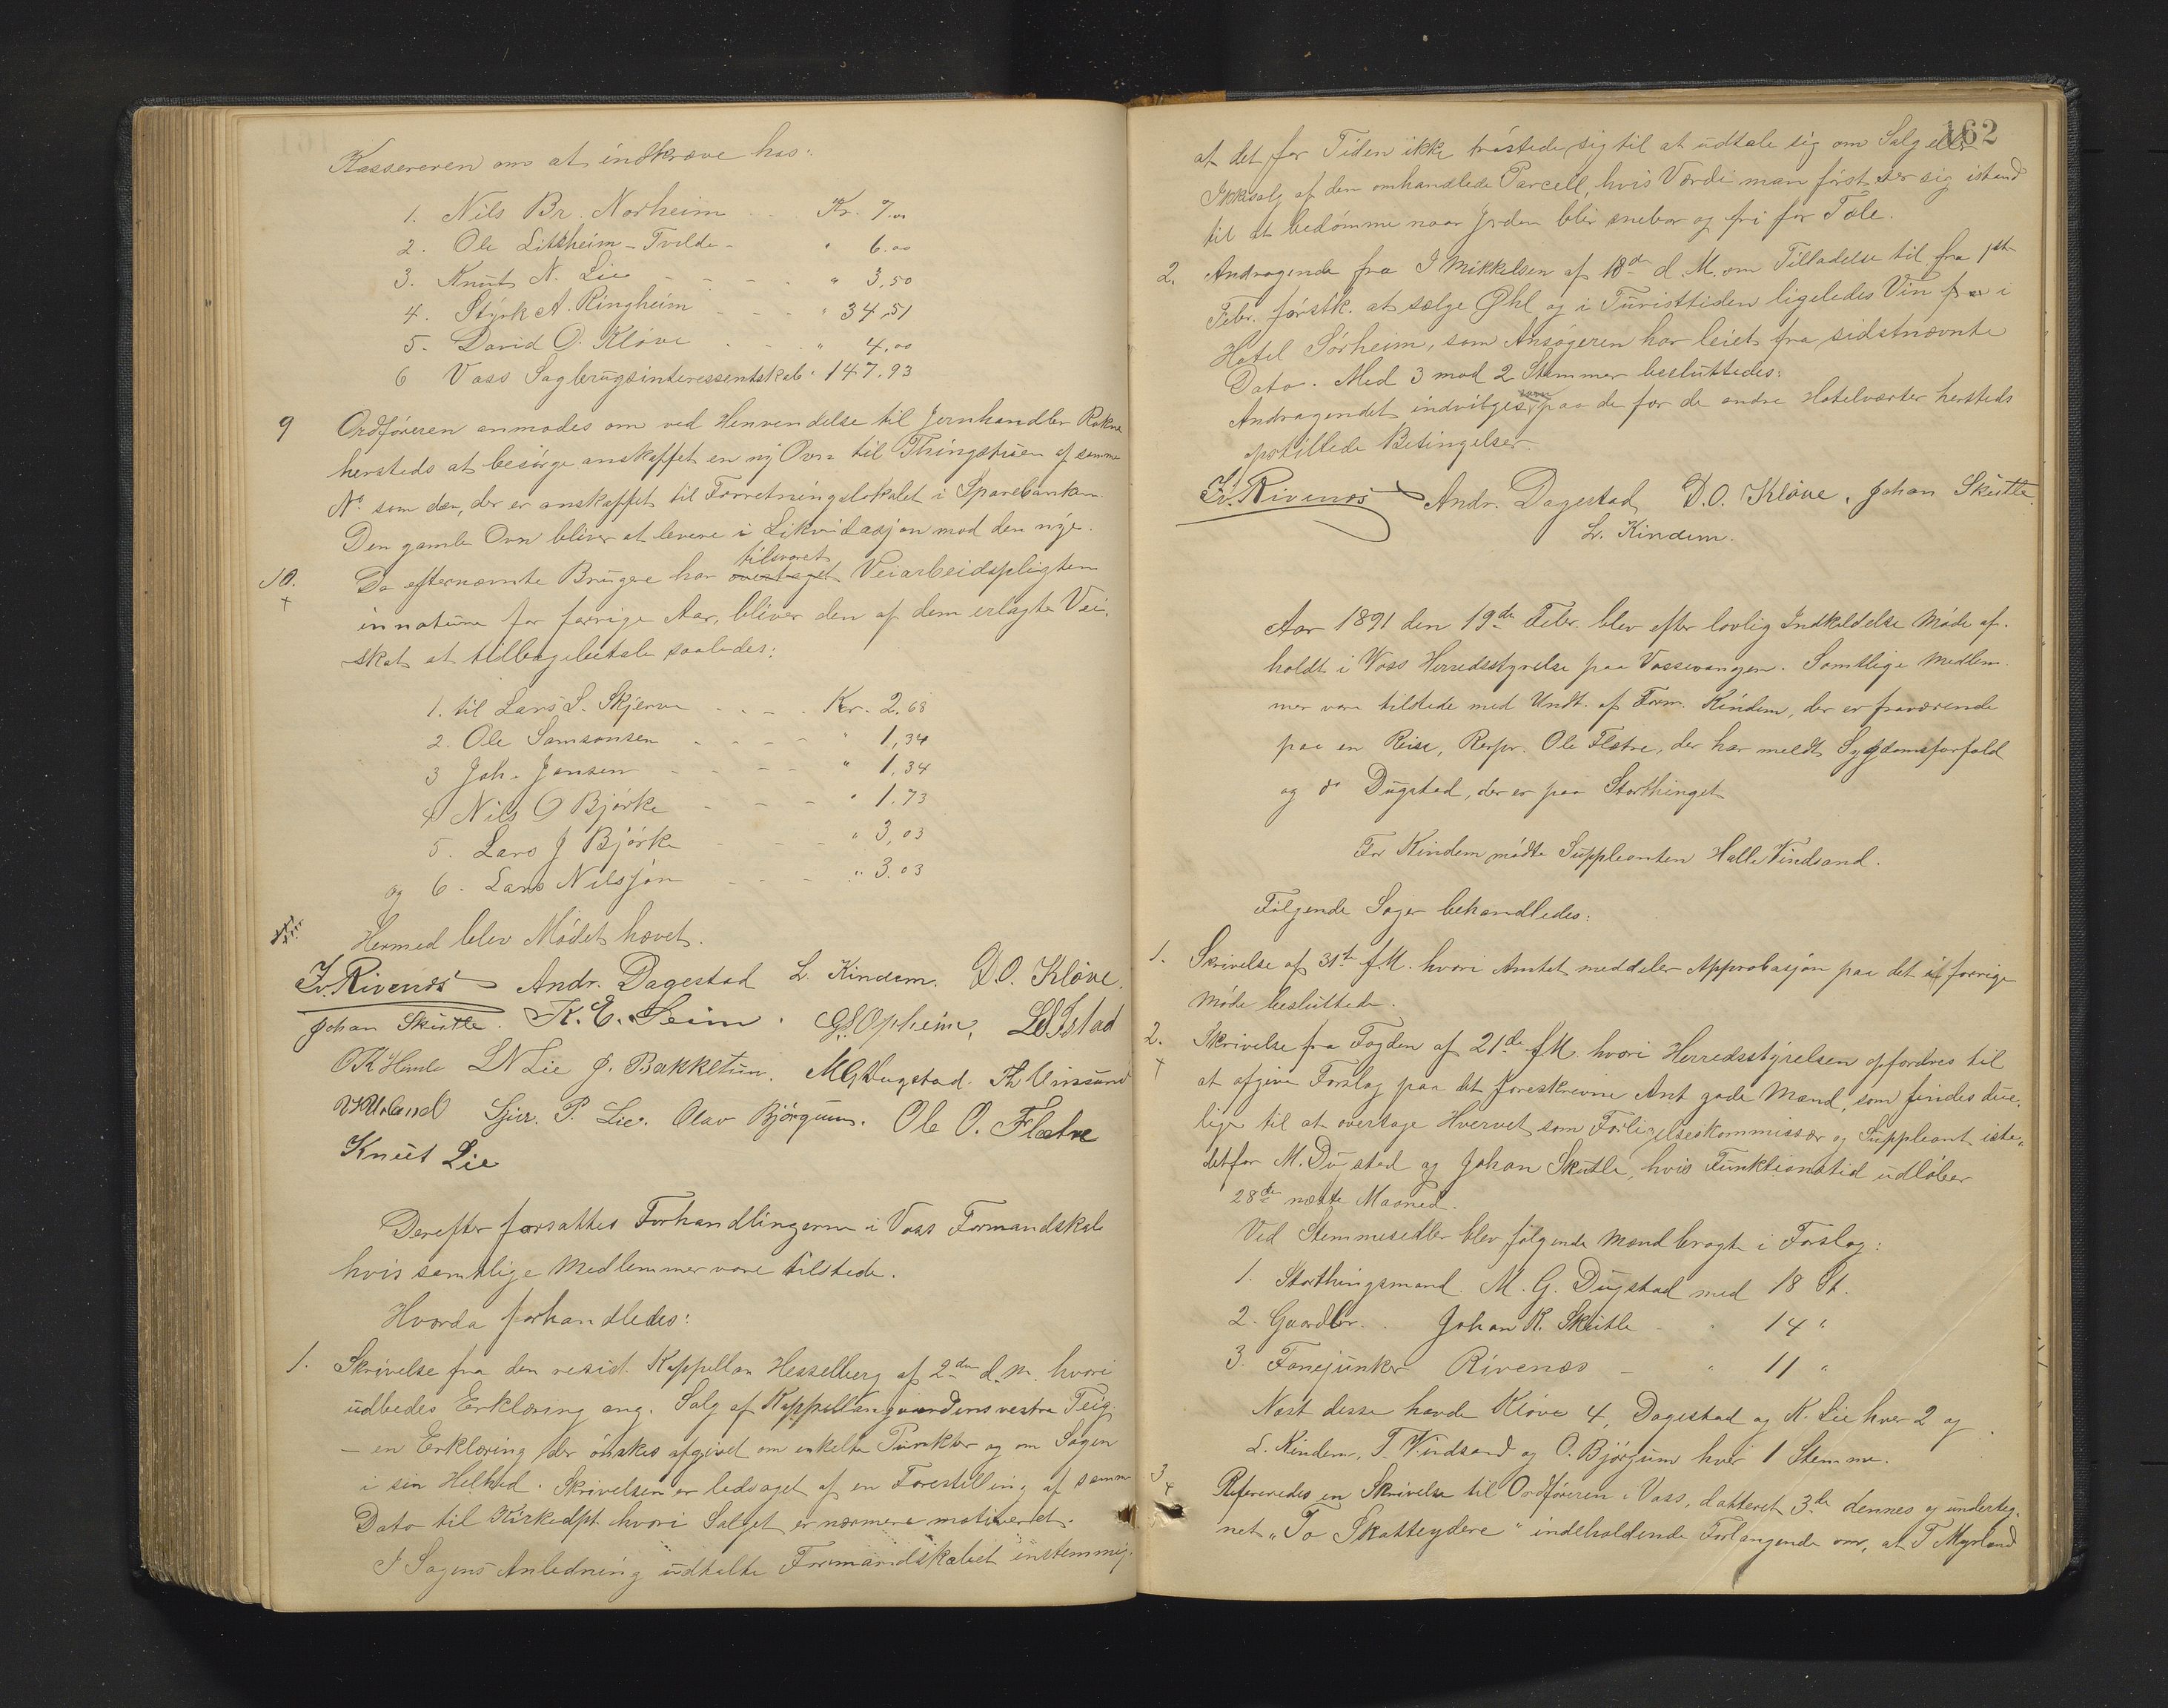 Kassereren om at indkræve hos:
1. Nils Br. Norheim - - Kr. 7.00
2. Ole Litsheim - Tvilde - " 6.00
3. Knut N. Lie - - - " 3,50
4. Styrk A. Ringheim - - - " 34,51
5. David O. Kløve - - - " 4.00
6 Voss Sagbrugsinteressentskab " 147.93
9 Ordføreren anmodes om ved Henvendelse til Jernhandler Rokne
hersteds at besørge anskaffet en ny Ovn til Thingstuen af samme
No. som den, der er anskaffet til Forretningslokalet i Sparebanken.
Den gamle Ovn bliver at levere i Likvidasjon mod den nye.
10. Da efternævnte Brugere har overtaget tilsvaret Veiarbeidspligten
+ in natura for forrige Aar, bliver den af dem erlagte Vei-
skat at tilbagebetale saaledes:
1. til Lars L. Skjerve - - - Kr. 2.68
2. Ole Samsonsen - - - - " 1,34
3 Joh. Jansen - - - - " 1,34
4 Nils O Bjørke - - - " 1.73
5. Lars J Bjørke - - - " 3,03
og 6. Lars Nilsjøn - - - " 3.03
Hermed blev Mødet hævet.
Iv. Rivenæs Andr. Dagestad L. Kindem. D.O. Kløve.
Johan Skutle. K. E. Seim. G S Opheim, L Istad
O K Hemle L N Lie J. Bakketun. M G Dugstad. Th Vinsand
Urland Sjur. P. Lie. Olav Bjørgum. Ole O. Flatre
Knut Lie
Derefter forsattes Forhandlingerne i Voss Formandskab
hvis samtlige Medlemmer vare tilstede.
Hvorda forhandledes:
1. Skrivelse fra den resid. Kappellan Hesselberg af 2den d. M. hvori
udbedes Erklæring ang. Salg af Kappellangaardens vestre Teig
- en Erklæring der ønskes afgivet om enkelte Punkter og om Sagen
i sin Helhed. Skrivelsen er ledsaget af en Forestilling af samme
Dato til Kirkedpt. hvori Salget er nærmere motiveret.
I Sagens Anledning udtalte Formandskabet enstemmig
162
at det for Tiden ikke trøstede sig til at udtale sig om Salg eller
Ikkesalg af den omhandlede Parcell, hvis Værdi man først ser sig istand
til at bedømme naar Jorden blir snebar og fri for Tæle.
2. Andragende fra I Mikkelsen af 18de d. M. om Tilladelse til fra 1ste
Febr. førstk. at sælge Øhl og i Turisttiden ligeledes Vin fra i
Hotel Sørheim, som Ansøgeren har leiet fra sidstnævnte
Dato. Med 3 mod 2 Stemmer besluttedes:
Andragendet indvilges paa de for de andre Hotelværter hersteds
opstillede Betingelser.
Iv. Rivenæs Andr. Dagestad D.O. Kløve. Johan Skutle.
L. Kindem.
Aar 1891 den 19de Febr. blev efter lovlig Indkaldelse Møde af-
holdt i Voss Herredsstyrelse paa Vossevangen. Samtlige Medlem-
mer vare tilstede med Undt. af Form. Kindem, der er fraværende
paa en Reise, Repr. Ole Flatre, der har meldt Sygdomsforfald
og do Dugstad, der er paa Storthinget
For Kindem mødte Suppleanten Halle Vindsand.
Følgende Sager behandledes:
1. Skrivelse af 31te f.M. hvori Amtet meddeler Approbasjon paa det af forrige
Møde besluttede.
2. Skrivelse fra Fogden af 21de f.M. hvori Herredsstyrelsen opfordres til
+ at afgive Forslag paa det foreskrevne Ant gode Mænd, som findes due-
lige til at overtage Hvervet som Forligelseskommissær og Suppleant iste-
detfor M. Dugstad og Johan Skutle, hvis Funktionstid udløber
28de næste Maaned.
Ved Stemmesedler blev følgende Mænd bragte i Forslag:
1. Storthingsmand M. G. Dugstad med 18 St.
2. Gaardbr. Johan R. Skutle - " 14 "
3. Fanejunker Rivenæs - " 11 "
Næst disse havde Kløve 4, Dagestad og K. Lie hver 2 og
L. Kindem, T. Vindsand og O. Bjørgum hver 1 Stemme.
3 Refereredes en Skrivelse til Ordføreren i Voss, datteret 3de dennes og underteg-
+ net "To Skatteydere" indeholdende Forlangende om, at T Myrland